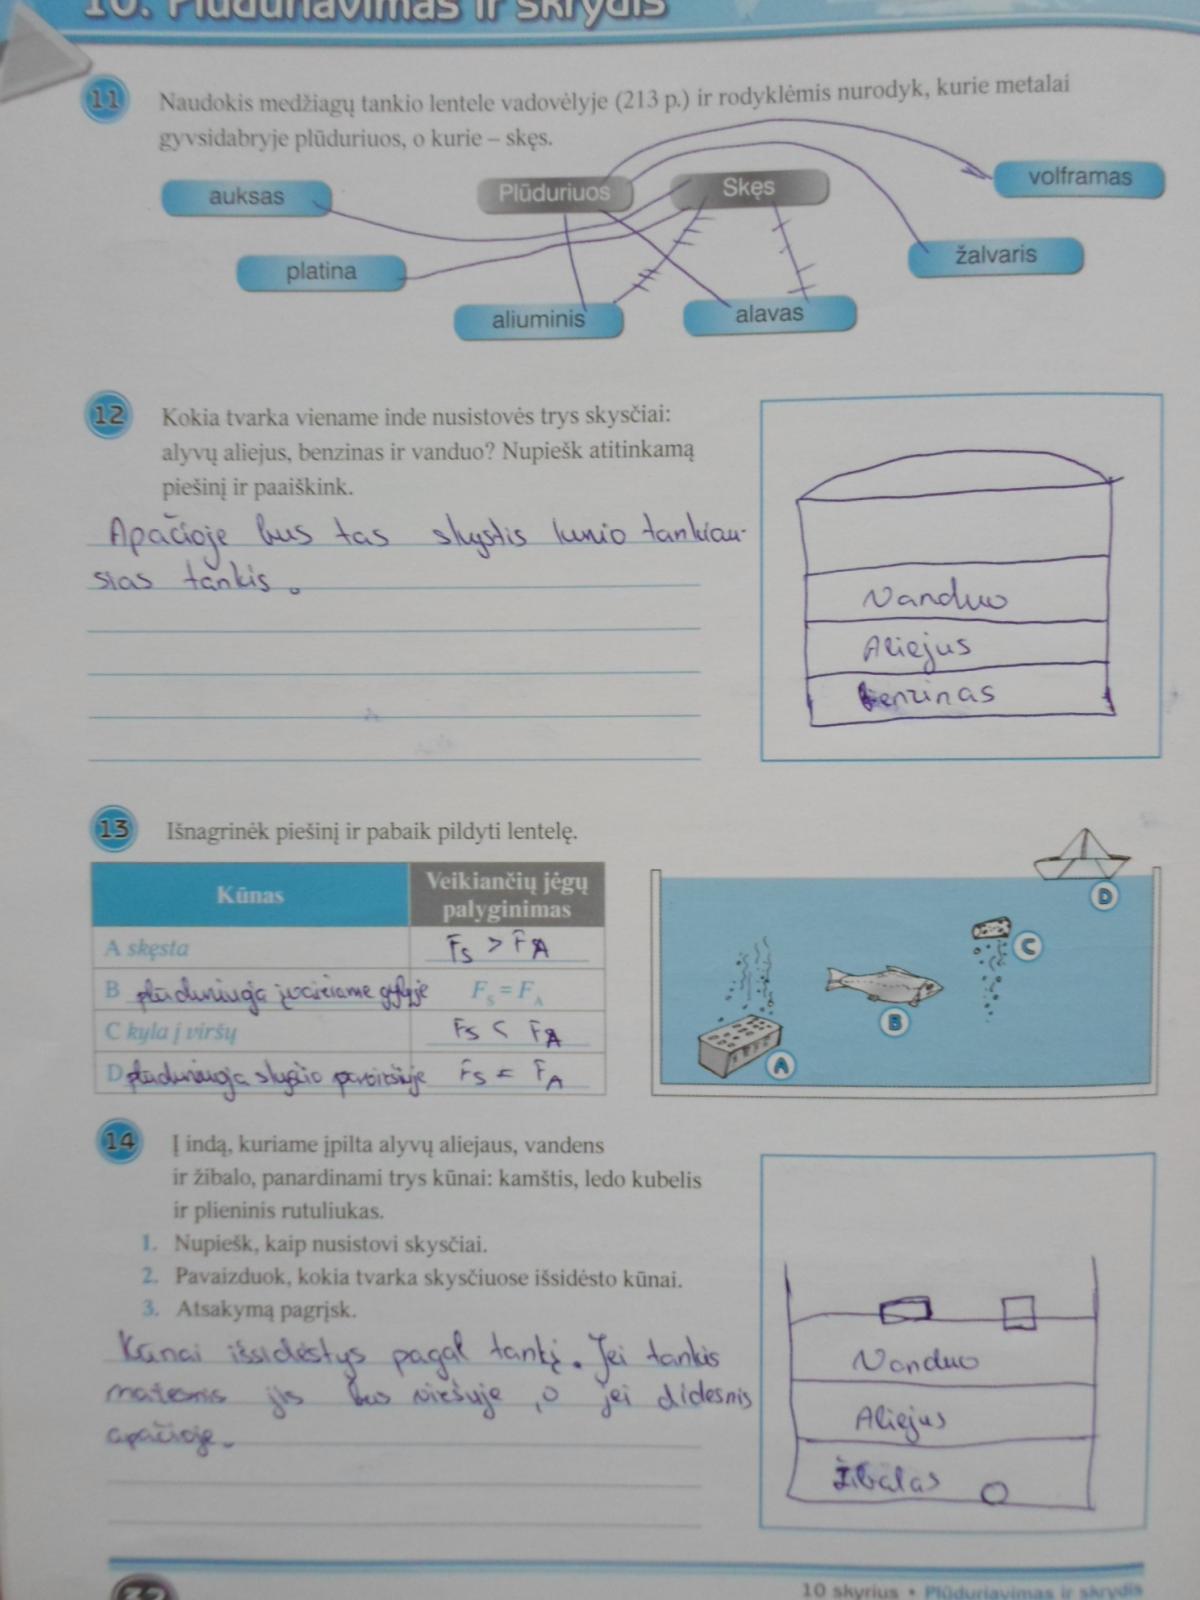 10. Plūduriavimas ir skrydis
11 Naudokis medžiagų tankio lentele vadovėlyje (213 p.) ir rodyklėmis nurodyk, kurie metalai
gyvsidabryje plūduriuos, o kurie – skęs.
auksas
Plūduriuos
Skęs
volframas
platina
žalvaris
aliuminis
alavas
12 Kokia tvarka viename inde nusistovės trys skysčiai:
alyvų aliejus, benzinas ir vanduo? Nupiešk atitinkamą
piešinį ir paaiškink.
Apačioje bus tas skystis kurio tankiau-
sias tankis.
Vanduo
Aliejus
Benzinas
13 Išnagrinėk piešinį ir pabaik pildyti lentelę.
Kūnas
Veikiančių jėgų
palyginimas
A skęsta Fs > FA
B plūduriuoja įvairiame gylyje Fs = FA
C kyla į viršų Fs < FA
D plūduriuoja skysčio paviršiuje Fs = FA
A
B
C
D
14 Į indą, kuriame įpilta alyvų aliejaus, vandens
ir žibalo, panardinami trys kūnai: kamštis, ledo kubelis
ir plieninis rutuliukas.
1. Nupiešk, kaip nusistovi skysčiai.
2. Pavaizduok, kokia tvarka skysčiuose išsidėsto kūnai.
3. Atsakymą pagrįsk.
Kūnai išsidėstys pagal tankį. Jei tankis
mažesnis jis bus viršuje, o jei didesnis
apačioje.
Vanduo
Aliejus
Žibalas
32
10 skyrius • Plūduriavimas ir skrydis